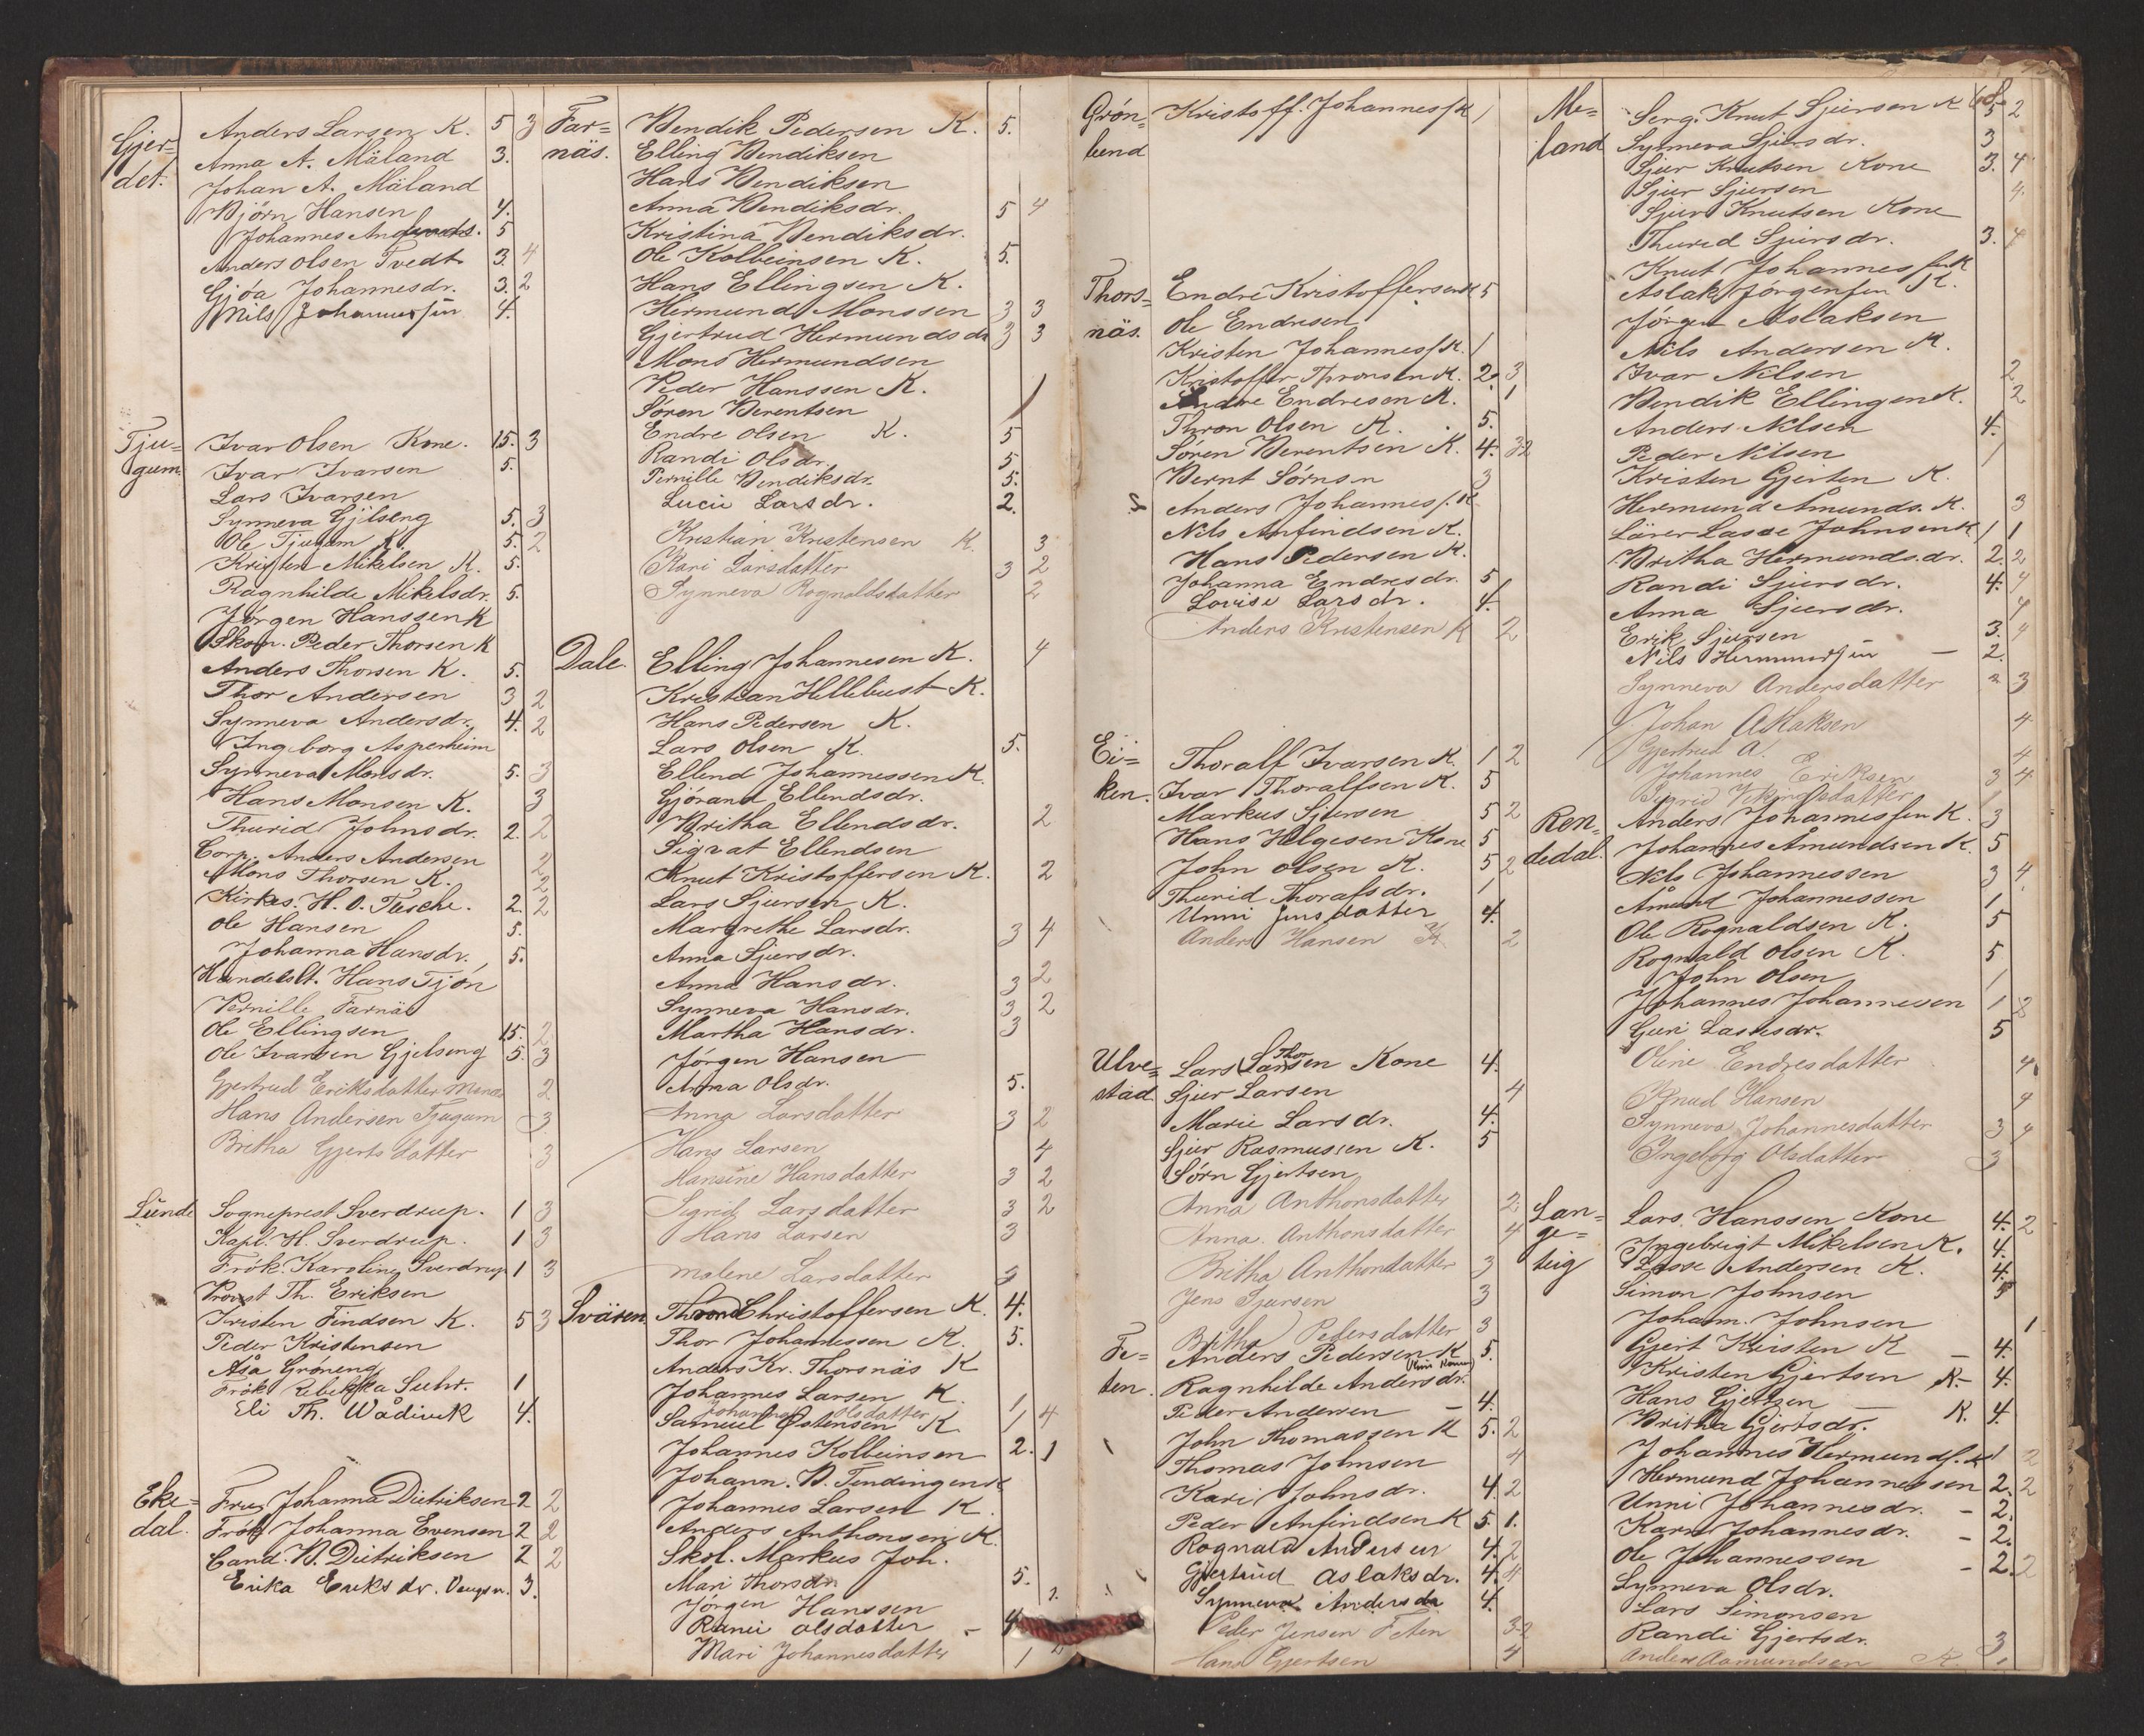 Gjer=
det.
Anders Larsen K. 5 3
Anna A. Mäland 3.
Johan A. Mäland
Bjørn Hansen 4.
Johannes 5
Anders Olsen Tvedt 3. 4
Gjøa Johannesdr. 3. 2
Nils Johannessen 4.
Tju=
gum.
Ivar Olsen Kone. 15. 3
Ivar Ivarsen 5.
Lars Ivarsen
Synneva Gjelseng 5. 3
Ole Tjugum K. 5. 2
Kristen Mikelsen K. 5.
Ragnhilde Mikelsdr. 5.
Jørgen Hanssen K
Skom. Peder Thorsen K
Anders Thorsen K. 5.
Thor Andersen 3 2
Synneva Andersdr. 4. 2
Ingeborg Asperheim
Synneva Monsdr. 5. 3
Hans Monsen K. 3
Thurid Johnsdr. 2. 2
Corp. Anders Andersen 2
Mons Thorsen K. 2
Kirkes. H. O. Tasche. 2. 2
Ole Hansen 5.
Johanna Hansdr. 5.
Handelslt. Hans Tjøn
Pernille Farnäs
Ole Ellingsen 15. 2
Ole Ivarsen Gjelseng 5. 3
Gjertrud Eriksdatter 2
Hans Andersen Tjugum 3
Britha Gjertsdatter 3
Lunde
Sogneprest Sverdrup. 1 3
Kapl. H. Sverdrup. 1 3
Frök. Karoline Sverdrup 1 3
Provst Th. Eriksen
Kristen Findsen K. 5 3
Peder Kristensen
Åsa Grøneng
Frök Rebekka Suhr. 1
Eli Th. Wådivik 4.
Eke=
dal.
Frue Johanna Dietriksen 2 2
Frök Johanna Evensen 2 2
Cand. B. Dietriksen 2 2
Erika Eriksdr. 3.
Far=
näs.
Bendik Pedersen K. 5.
Elling Bendiksen
Hans Bendiksen
Anna Bendiksdr. 5 4
Kristina Bendiksdr.
Ole Kolbeinsen K. 5.
Hans Ellingsen K.
Hermund Monssen 3 3
Gjertrud Hermundsdr 3 3
Mons Hermundsen
Peder Hanssen K. 1
Søren Berentsen
Endre Olsen K. 5
Randi Olsdr. 5
Pernille Bendiksdr. 5.
Lucie Larsdr. 2.
Kristian Kristensen K. 3
Kari Larsdatter 3 2
Synneva Rognaldsdatter 2
Dale.
Elling Johannesen K. 4
Kristian Hellebust K.
Hans Pedersen K.
Lars Olsen K. 5.
Ellend Johannessen K.
Gjørand Ellendsdr.
Britha Ellendsdr. 2
Sigvat Ellendsen
Knut Kristoffersen K. 2
Lars Sjursen K.
Margrethe Larsdr. 3 4
Anna Sjursdr.
Anna Hansdr. 3 2
Synneva Hansdr. 3 2
Martha Hansdr. 3
Jørgen Hansen
Anna Olsdr. 5.
Anna Larsdatter 3 2
Hans Larsen 4
Hansine Hansdatter 3 2
Sigrid Larsdatter 3 2
Hans Larsen 3
Malene Larsdatter 3
Svären
Thrond Christoffersen K. 4.
Thor Johannessen K. 5.
Anders Kr. Thorsnäs K
Johannes Larsen K. 1
Johanna Olsdatter
Samuel Østensen K 1 4
Johannes Kolbeinsen 2. 1
Johann. B. Tendingen K
Johannes Larsen K.
Anders Anthonsen K.
Skol. Markus Joh.
Mari Thorsdr 5.
Jørgen Hanssen 2.
Rani Olsdatter - 4
Mari Johannesdatter 1 2
Grøn=
lund
Kristoff. Johannes/K 1
Thors=
näs.
Endre Kristoffersen K 5
Ole Endresen
Kristen Johannes/K. 1
Kristoffer Thronsen K. 2. 3
Endre Endresen K. 1
Thron Olsen K. 5.
Søren Berentsen K. 4. 32
Bernt Sørnsen 3
Anders Johannes/K
Nils Anfindsen K.
Hans Pedersen K.
Johanna Endresdr. 5
Lovise Larsdr. 4.
Anders Kristensen K 2
Ei=
ken.
Thoralf Ivarsen K. 1 2
Ivar Thoralfsen K. 5
Markus Sjursen 5 2
Hans Helgesen Kone 5
John Olsen K. 5 2
Thurid Thorafsdr. 1
Unni Jensdatter 4.
Anders Hansen K. 2
Ulve=
stad
Lars Larsen Kone 4.
Thor
Sjur Larsen 4
Marie Larsdr. 4.
Sjur Rasmussen K. 5
Sørn Gjertsen
Anna Anthonsdatter 2
Anna Anthonsdatter 4
Britha Anthonsdatter 3
Jens Sjursen 3
Britha Pedersdatter 3
Fe=
ten.
Anders Pedersen K 5.
Ragnhilde Andersdr.
Peder Andersen - 4.
John Thomassen K 5. 2
Thomas Johnsen 4
Kari Johnsdr. 4. 2
Peder Anfindsen K 5. 1.
Rognald Andersen 4. 2
Gjertrud Aslaksdr. 4. 4
Synneva Andersdr 4.
Peder Jensen Feten 3 2
Hans Gjertsen 4
68.
Me=
land
Serg. Knut Sjursen K 5 2
Synneva Sjursdr. 3
Sjur Knutsen Kone 3. 4
Sjur Sjursen 4.
Sjur Knutsen Kone
Thurid Sjursdr. 3. 4
Knut Johannessen K
Aslak Jørgensen K.
Jørgen Aslaksen
Nils Andersen K.
Ivar Nilsen 2
Bendik Ellingen K. 2
Anders Nilsen 4.
Peder Nilsen 1
Kristen Gjerten K.
Hermund Åmunds. K. 3
Lärer Lasse Johnsen K 1 1
Britha Hermundsdr. 2. 2
Randi Sjursdr. 4. 4
Anna Sjursdr. 4
Erik Sjursen 3. 4
Nils Hermundsen - 2.
Synneva Andersdatter 2 3
Johan Aslaksen 4
Gjertrud A. 4
Johannes Eriksen 3 4
Sigrid Vikingsdatter 1
Ren=
dedal.
Anders Johannessen K. 3
Johannes Åmundsen K. 5
Nils Johannessen 3 4.
Åmund Johannessen 1
Ole Rognaldsen K. 5
Rognald Olsen K. 5
John Olsen 1
Johannes Johannesen 1 3
Guri Lassesdr. 5
Oline Endresdatter 4.
Knud Hansen 4
Synneva Johannesdatter 3 4
Ingeborg Olsdatter 3
Lan=
ge=
teig
Lars Hanssen Kone 4. 2
Ingebrigt Mikelsen K. 4.
Lasse Andersen K. 4.
Simon Johnsen 5
Johann. Johnsen 1
Gjert Kristen K - 4.
Kristen Gjertsen K - 4.
Hans Gjertsen - K. 4.
Britha Gjertsdr.
Johannes Hermunds. K 1 2
Hermund Johannessen 2. 2
Unni Johannesdr. - 2.
Kari Johannesdr. - 2.
Ole Johannessen - 2. 2
Synneva Olsdr.
Lars Simonsen
Randi Gjertsdr. 3
Anders Aamundsen K. 1